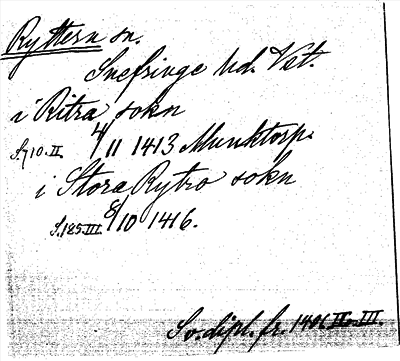 Ryttern sn.
Snefringe hd. Vst.
i Ritra sokn
S.710.II 4/11 1413 Munktorp.
i Stora Rytro sokn
S.185.III 8/10 1416.
Sv. dipl. fr. 1401 II o. III.